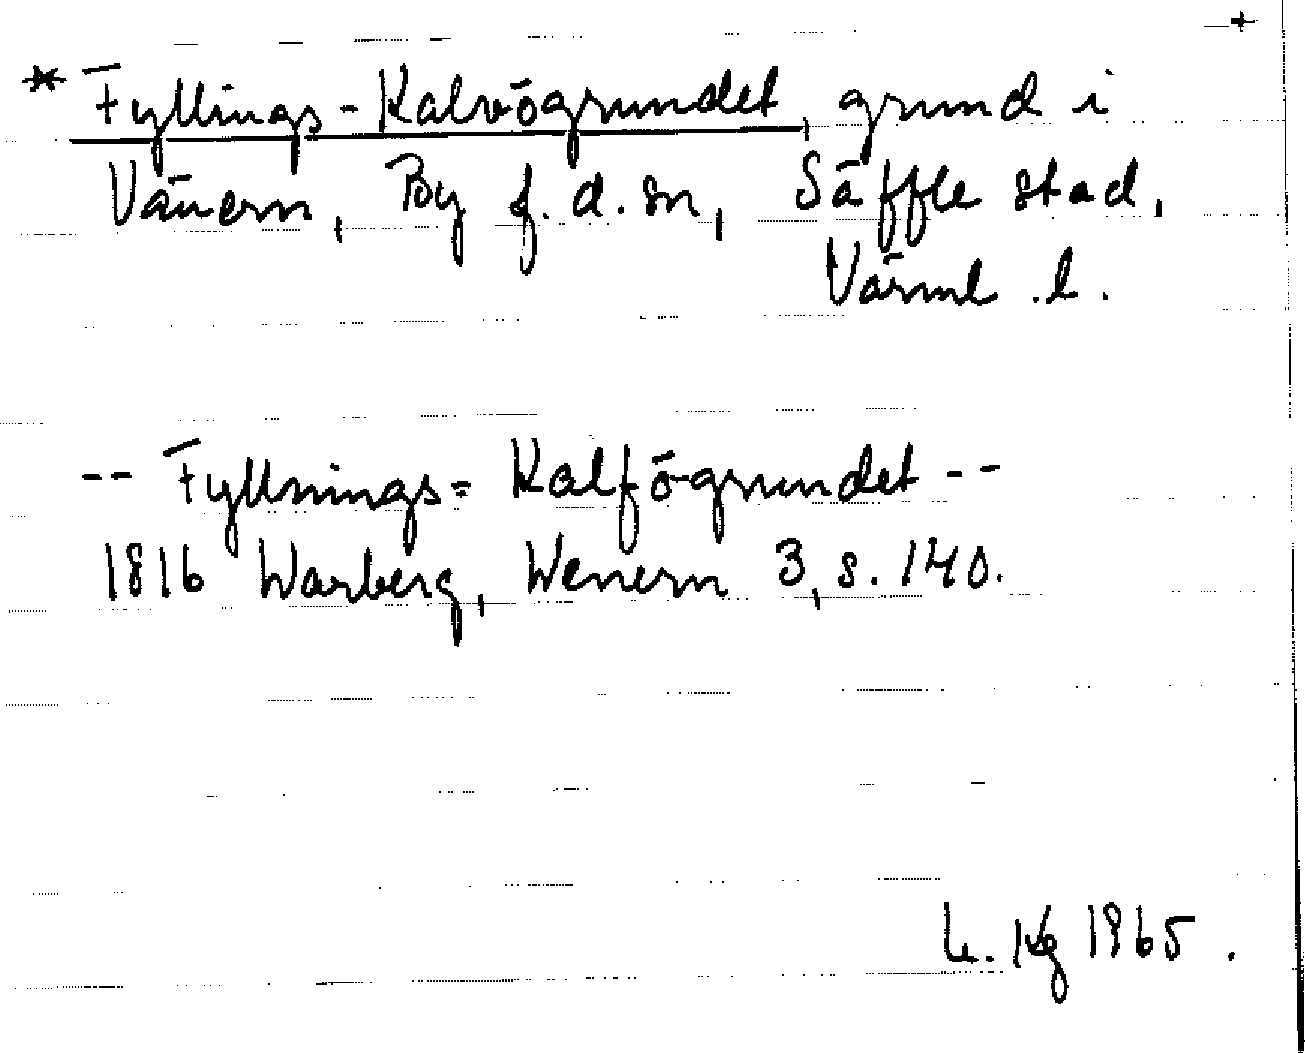 * Fyllings-Kalvögrundet, grund i
Vänern, By f.d. sn, Säffle stad,
Värml. l.
-- Fyllnings= Kalfö-grundet --
1816 Warberg, Wenern 3, s. 140.
1965.